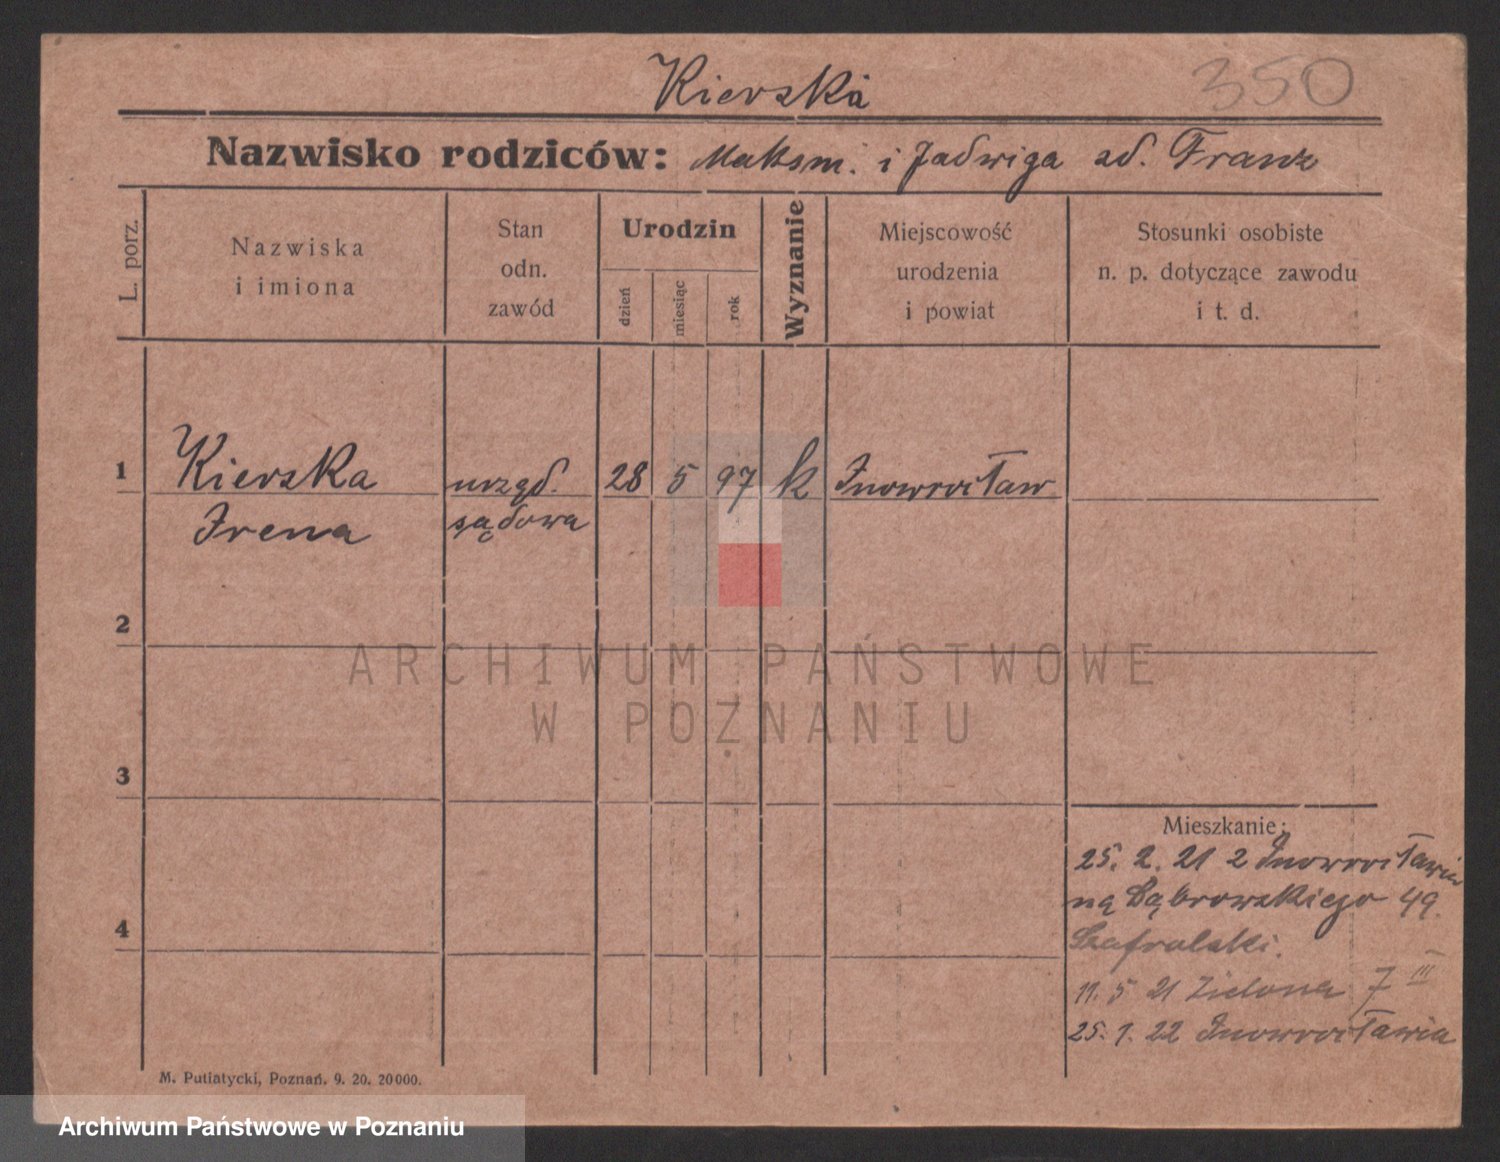 Kierska
350
Nazwisko rodziców: Maksm. i Jadwiga zd. Franz
L. porz.
Nazwiska
i imiona
Stan
odn.
zawód
Urodzin
dzień
miesiąc
rok
Wyznanie
Miejscowość
urodzenia
i powiat
Stosunki osobiste
n. p. dotyczące zawodu
i t. d.
1 Kierska urzęd. 28 5 97 k Inowrocław
Irena sądowa
2
ARCHIWUM PAŃSTWOWE
W POZNANIU
3
Mieszkanie:
25. 2. 21 z Inowrocławia
na Dąbrowskiego 49.
4
11. 5 21 Zielona 7 III
25. 1. 22 Inowrocławia
M. Putiatycki, Poznań. 9. 20. 20000.
Archiwum Państwowe w Poznaniu